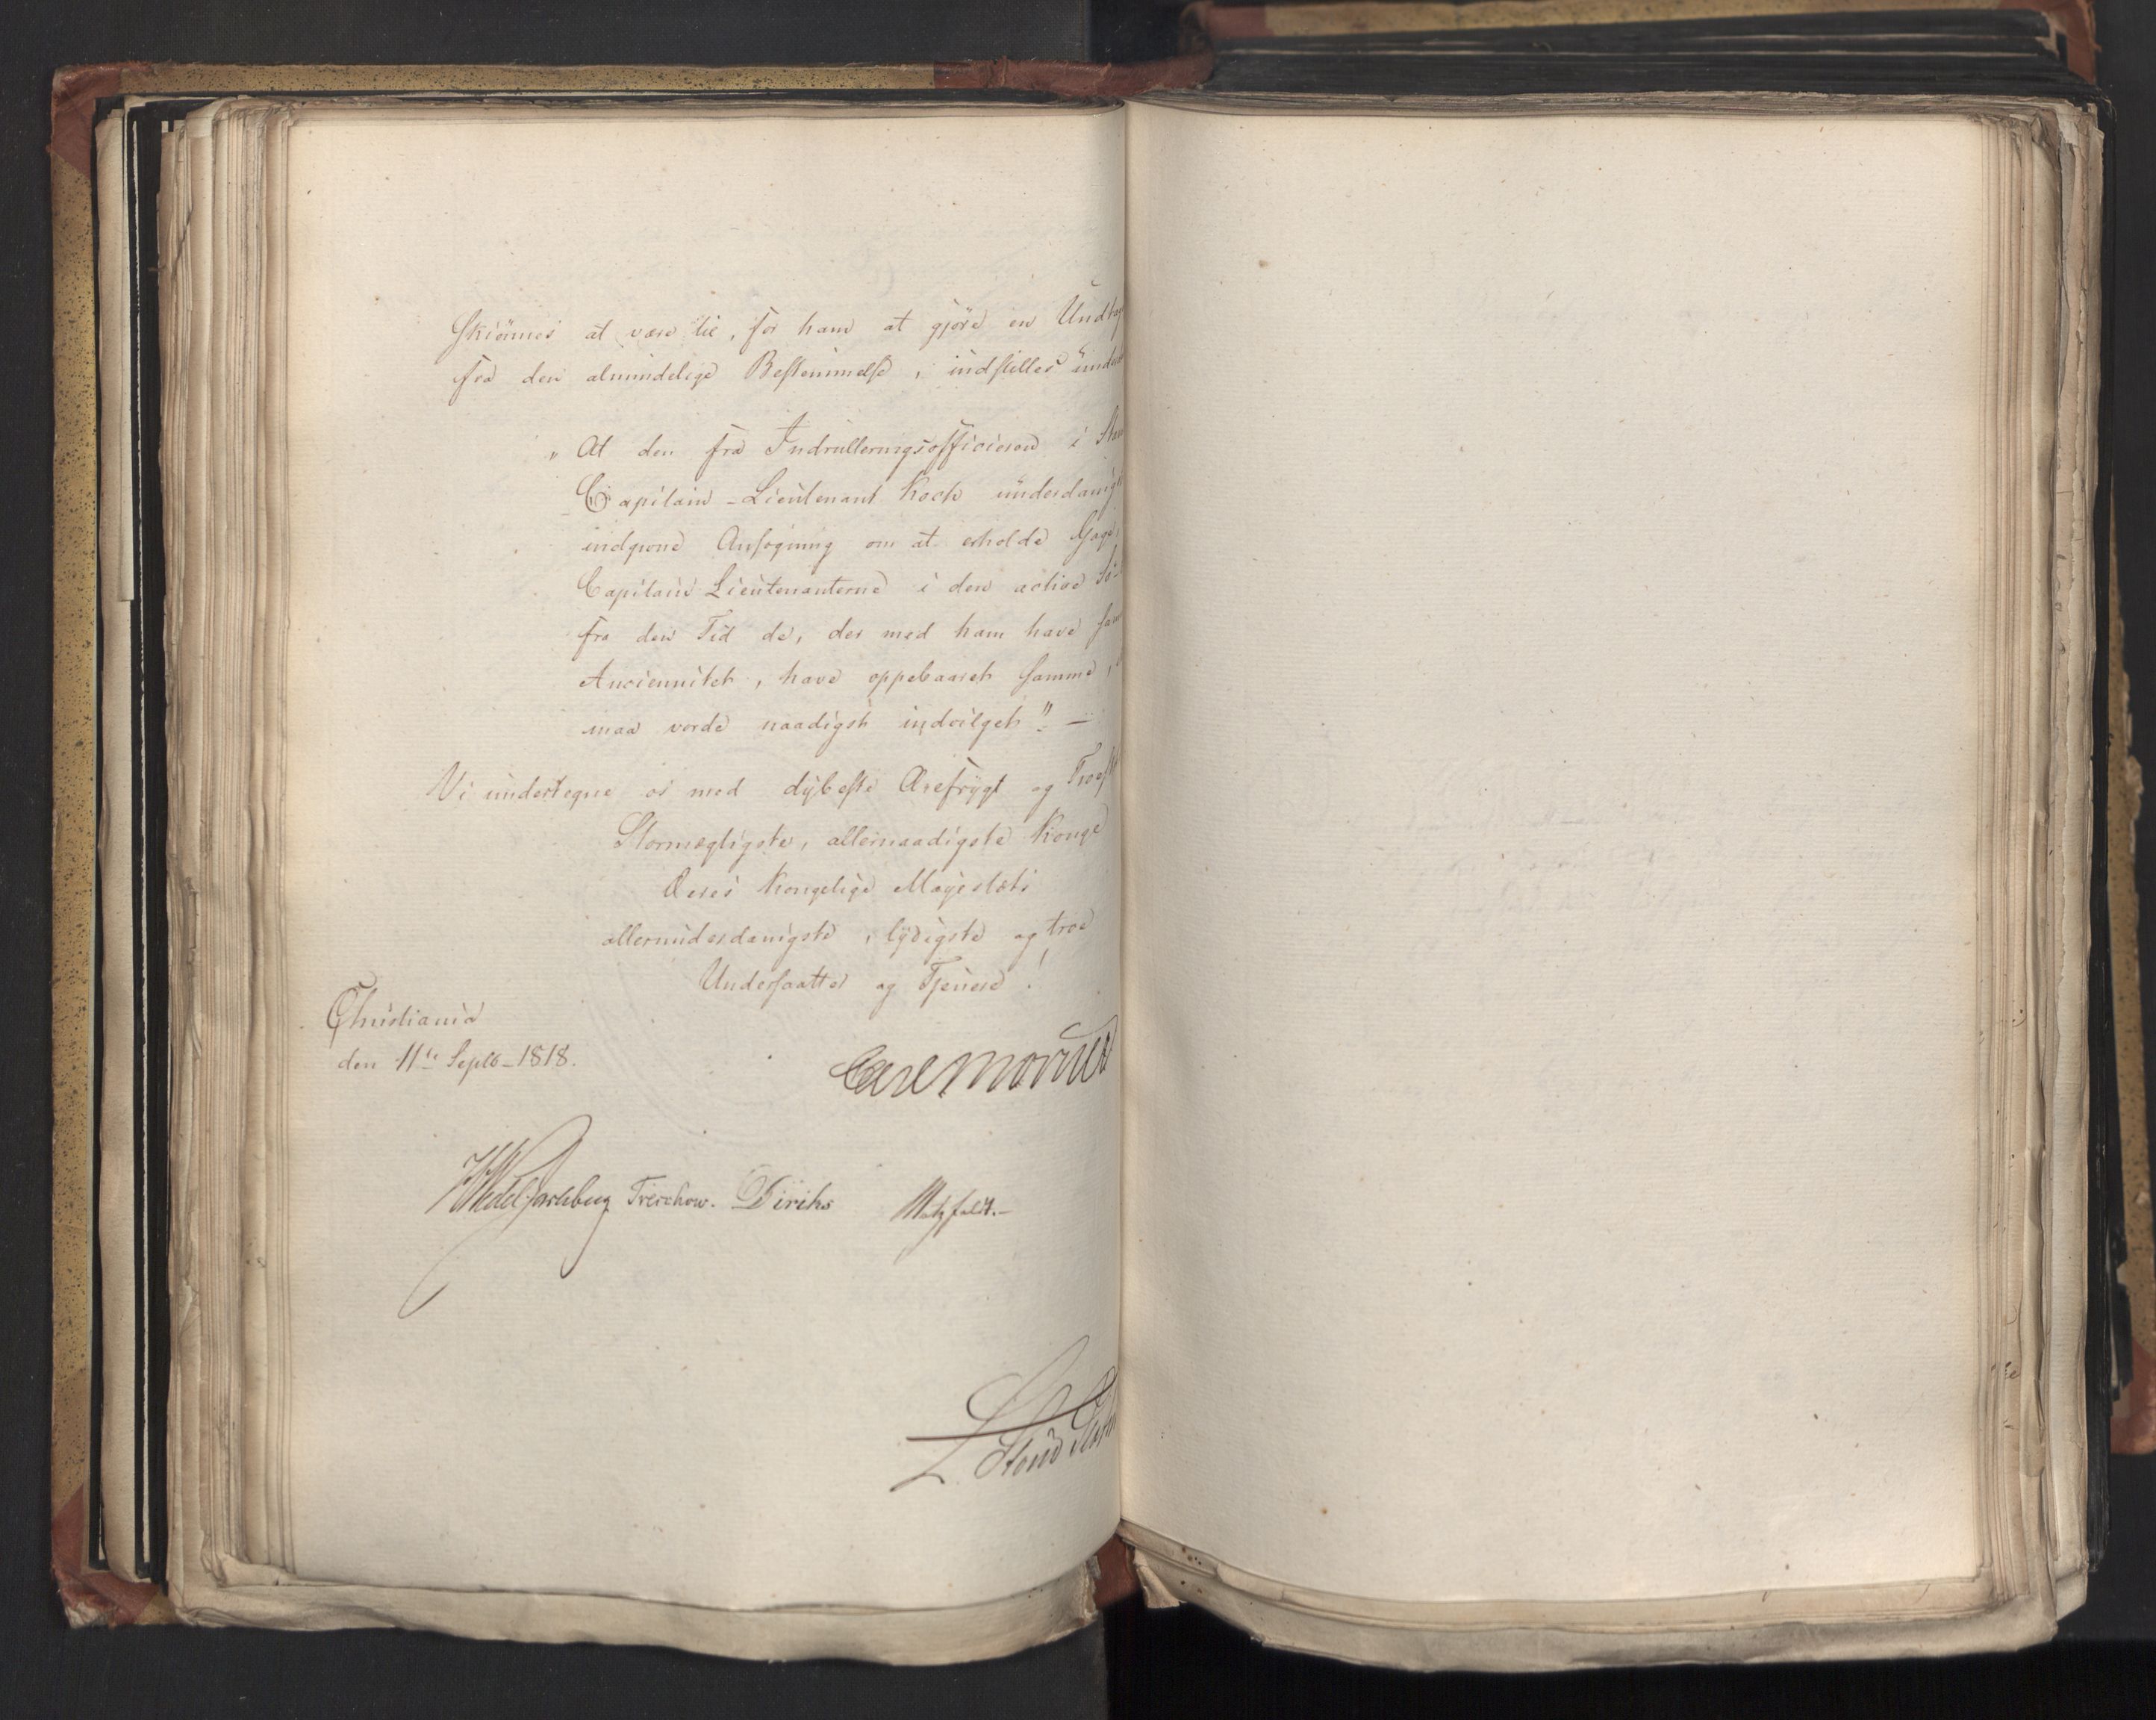 Skiønnes at være til, for ham at gjøre en Undtag
fra den almindelige Bestemmelse, indstilles under
„At den fra Indrulleringsofficieren i Stav
Capitain-Lieutenant Koch underdanigst
indgivne Ansøgning om at erholde Gage
Capitain Lieutenanterne i den active Sø
fra den Tid de, der med ham have sam
Anciennitet, have oppebaaret samme,
maa vorde naadigst indvilget"-
Vi undertegne os med dybeste Ærefrygt og Troesk
Stormægtigste, allernaadigste Konge
Deres Kongelige Majestæts
allerunderdanigste, lydigste og troe
Undersaatter og Tjenere!
Christiania
den 11te Septb-1818.
Carl Mörner
HWedel Jarlsberg Treschow. Diriks Motzfeldt.-
L. Stoud Plato